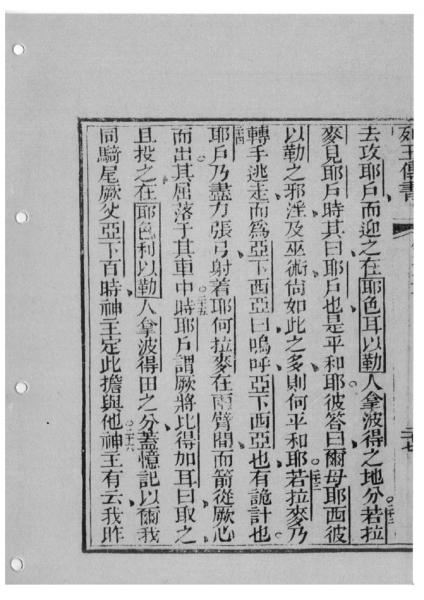 列王傳書
二十七
去攻耶戶而迎之在耶色耳以勒人拿波得之地分○二十二若拉
麥見耶戶時其曰耶戶也是平和耶彼答曰爾母耶西彼
以勒之邪淫及巫術尙如此之多則何平和耶○二十三若拉麥乃
轉手逃走而爲亞下西亞曰嗚呼亞下西亞也有詭計也
○二十四耶戶乃盡力張弓射着耶何拉麥在兩臂間而箭從厥心
而出其屈落于其車中○二十五時耶戶謂厥將比得加耳曰取之
且投之在耶色利以勒人拿波得田之分○二十六蓋憶記以爾我
同騎尾厥父亞下百時神王定此擔與他神王有云我昨